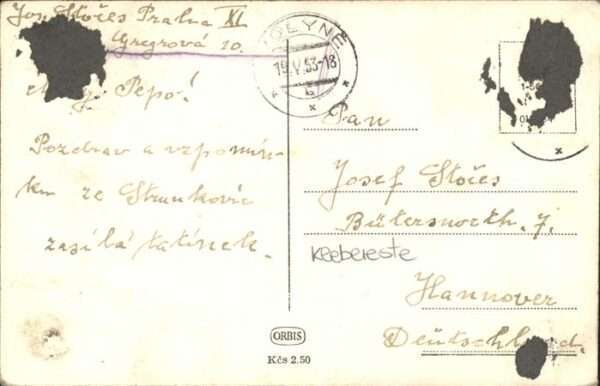 Jos. Stočes Praha XI
Gregrová 10.
Pepo!
Pozdrav a vzpomín-
ku ze Strunkovic
zasílá tatínek.
VOLYNĚ
19.V.53-18
Pan
Josef Stočes
7.
Kleebereste
Hannover
Deutschland.
ORBIS
Kčs 2.50